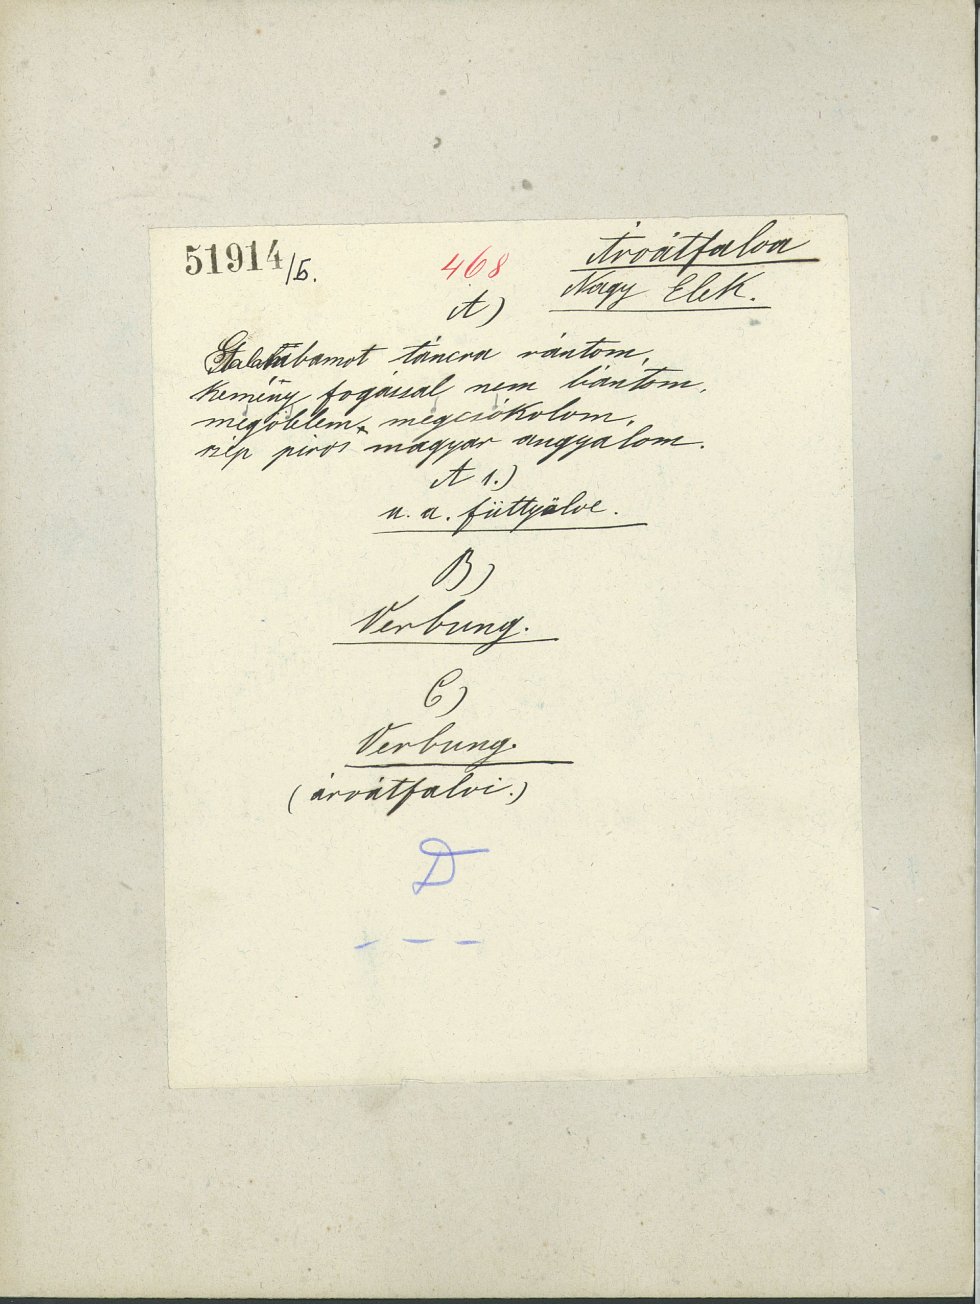 51914/5.
468
Árvátfalva
Nagy Elek.
A)
Galambamot táncra rántom,
kemény fogással nem bántom,
megölelem, megcsókolom,
szép piros magyar angyalom.
A 1.)
u. a. füttyölve.
B)
Verbung.
C)
Verbung.
(árvátfalvi.)
D
- - -